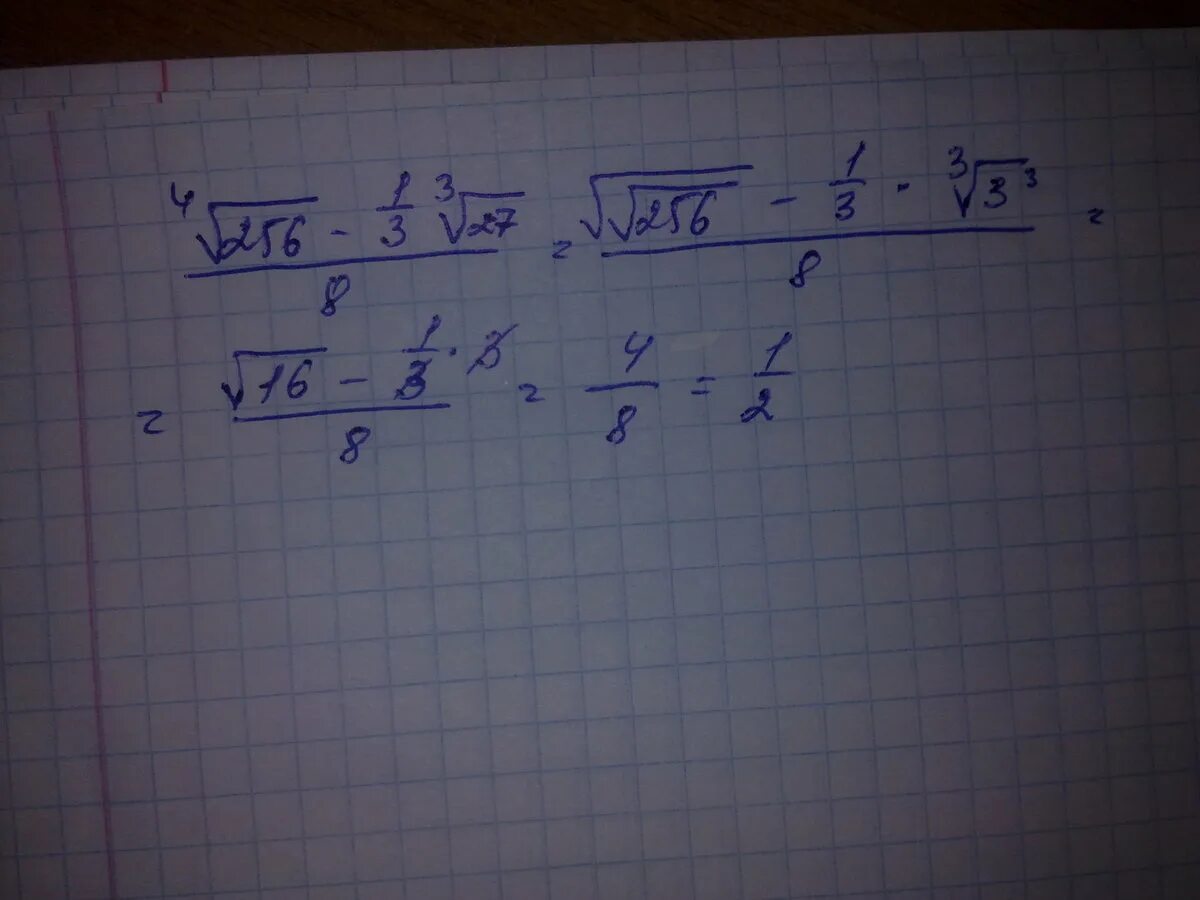 $\frac{\sqrt[4]{256} - \frac{1}{3}\sqrt[3]{27}}{8} = \frac{\sqrt{\sqrt{256}} - \frac{1}{3} \cdot \sqrt[3]{3^3}}{8} =$
$= \frac{\sqrt{16} - \frac{1}{3} \cdot 3}{8} = \frac{4}{8} = \frac{1}{2}$